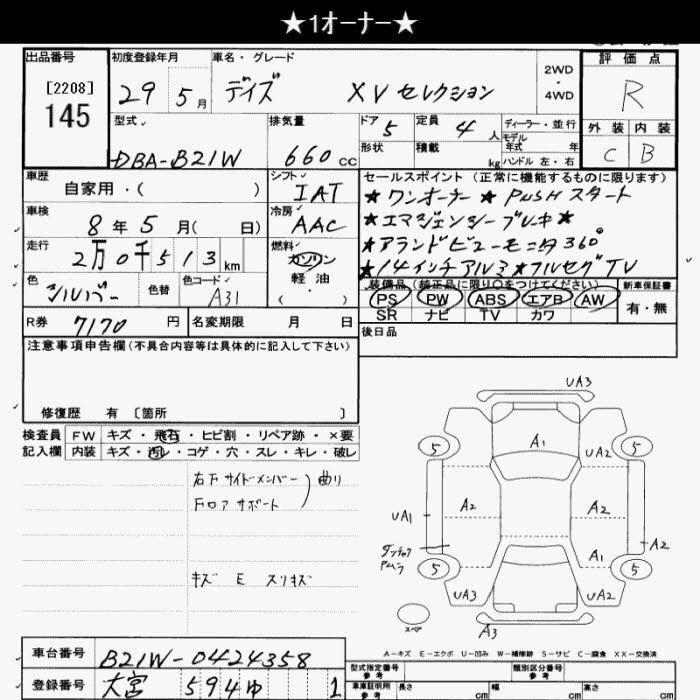 ★1オーナー★
出品番号
[2208]
145
初度登録年月
29 5月
車名・グレード
デイズ XVセレクション
2WD
・
4WD
評価点
R
外装 内装
C B
型式
DBA-B21W
排気量
660cc
ドア 5
形状
定員 4人
積載 kg
ディーラー・並行
モデル
年式 年
ハンドル 左・右
車歴
自家用・( )
シフト
IAT
車検
8年5月( 日)
冷房
AAC
走行
2万0千513km
燃料
ガソリン
軽油
( )
色
シルバー
色替
色コード
A31
R券 7170円
名変期限 月 日
セールスポイント (正常に機能するものに限ります)
★ワンオーナー ★PUSHスタート
★エマジェンシーブレーキ★
★アランドビューモニタ360°
★14インチアルミ★フルセグTV
装備品(純正品に限り○をつけてください)
PS PW ABS エアB AW
SR ナビ TV カワ
新車保証書
有・無
後日品
注意事項申告欄(不具合内容等は具体的に記入して下さい)
修復歴 有 〔箇所 〕
検査員
記入欄
FW キズ・飛石・ヒビ割・リペア跡・×要
内装 キズ・汚レ・コゲ・穴・スレ・キレ・破レ
右下サイドメンバー
フロアサポート
曲り
キズ E スリキズ
UA3
A1
5 UA2 5
UA1 A2 A2 A2
A1
5 5
UA3 UA2
スペア
A3
A-キズ E-エクボ U-凹み W-補修跡 S-サビ C-腐食 XX-交換済
車台番号 B21W-0424358
登録番号 大宮 594ゆ 1
型式指定番号
参考
類別区分番号
参考
車庫証明用
参考
長さ cm 幅 cm 高さ cm